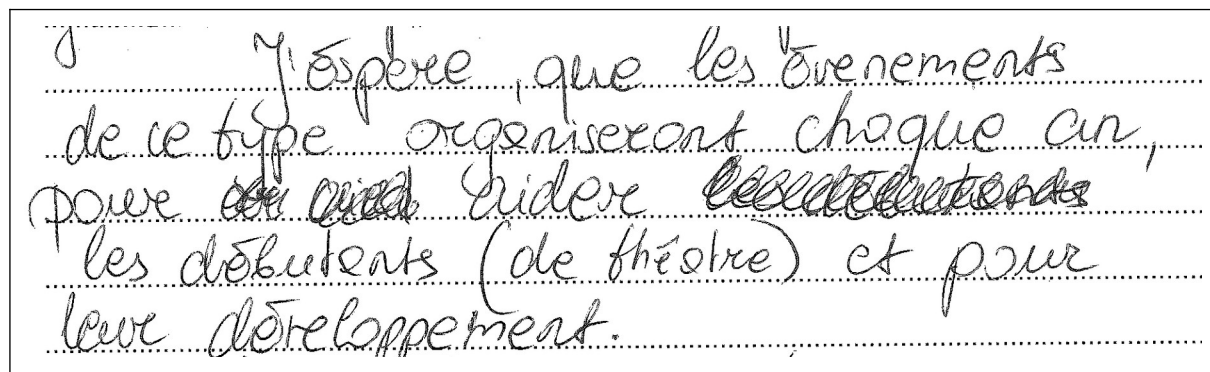 J'éspère, que les évenements
de ce type orgéniseront chaque an,
pour aider
les débutents (de théâtre) et pour
leur développement.